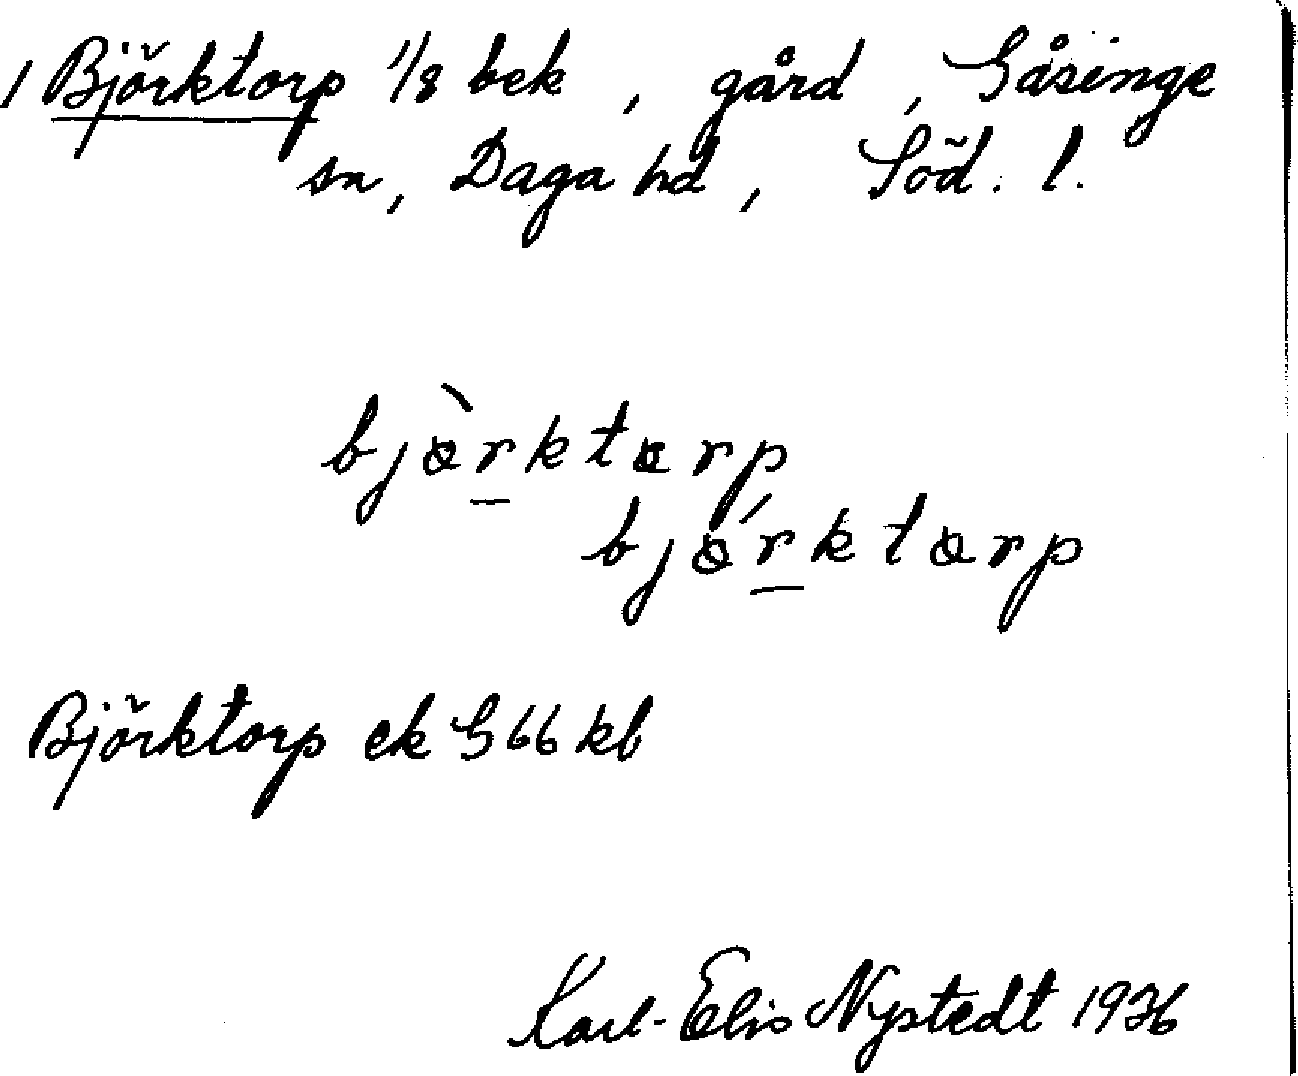 1 Björktorp 1/8 bek, gård, Gåsinge
sn, Daga hd, Söd. l.
bjö̀rktorp
bjö́rktorp
Björktorp ek G 66 kb
Karl-Elis Nystedt 1936